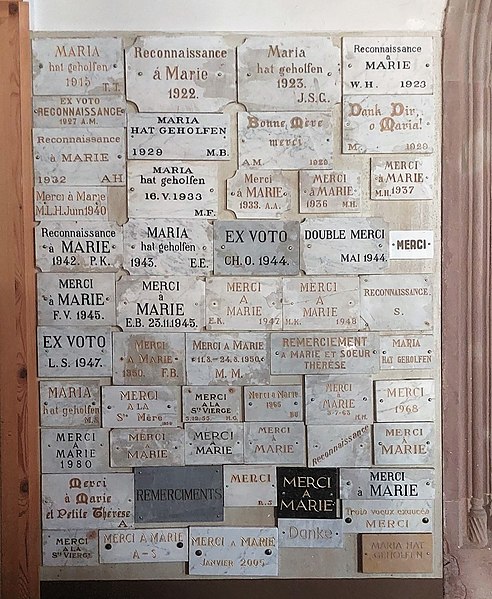 MARIA
hat geholfen
1915 T.T.
Reconnaissance
á Marie
1922.
Maria
hat geholfen
1923.
J.S.G.
Reconnaissance
à
MARIE
W.H. 1923
EX VOTO
RECONNAISSANCE
1927 A.M.
MARIA
HAT GEHOLFEN
1929 M.B.
Bonne Mère
merci
A.M. 1929
Dank Dir,
o Maria!
M. 1929
Reconnaissance
à MARIE
1932 AH
MARIA
hat geholfen
16.V.1933
M.F.
Merci
à MARIE
1933. A.A.
MERCI
à MARIE
1936 M.H.
MERCI
à MARIE
M.H. 1937
Merci à Marie
M.L.H. Juni 1940
Reconnaissance
à MARIE
1942. P.K.
MARIA
hat geholfen
1943. E.E.
EX VOTO
CH.O. 1944.
DOUBLE MERCI
MAI 1944.
MERCI
MERCI
à MARIE
F.V. 1945.
MERCI
à
MARIE
E.B. 23.11.1945.
MERCI
A
MARIE
E.K. 1947
MERCI
A
MARIE
M.K. 1948
RECONNAISSANCE.
S.
EX VOTO
L.S. 1947.
MERCI
à MARIE
1950. F.B.
MERCI à MARIE
M.M.
REMERCIEMENT
A MARIE ET SOEUR
THÉRÈSE
MARIA
HAT GEHOLFEN
MARIA
hat geholfen
M.S.
MERCI
A LA
Ste Mère
MERCI
A LA
Ste VIERGE
M.G.
Merci à Marie
1960
MERCI
à
MARIE
3-7-63 M.H.
MERCI
1968
MERCI
à MARIE
1980
MERCI
à
MARIE
MERCI
à MARIE
MERCI
à
MARIE
Reconnaissance
MERCI
à
MARIE
Merci
à Marie
et Petite Thérèse
A.
REMERCIMENTS
MERCI
R.J
MERCI
A
MARIE
MERCI
à MARIE
Trois voeux exaucés
MERCI
MERCI
A LA
Ste VIERGE
MERCI À MARIE
A-S
MERCI À MARIE
JANVIER 2005
Danke
MARIA HAT
GEHOLFEN